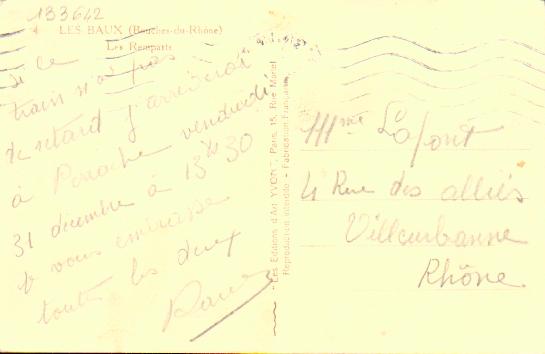 133642
4 LES BAUX (Bouches-du-Rhône)
Les Remparts
si ce
train n'a pas
de retard j'arriverai
à Perrache vendredi
31 décembre à 13h 30
je vous embrasse
toutes les deux
Les Editions d'Art YVON, Paris, 15, Rue Martel
Reproduction interdite - Fabrication Française
Mme Lafont
4 Rue des alliés
Villeurbanne
Rhône